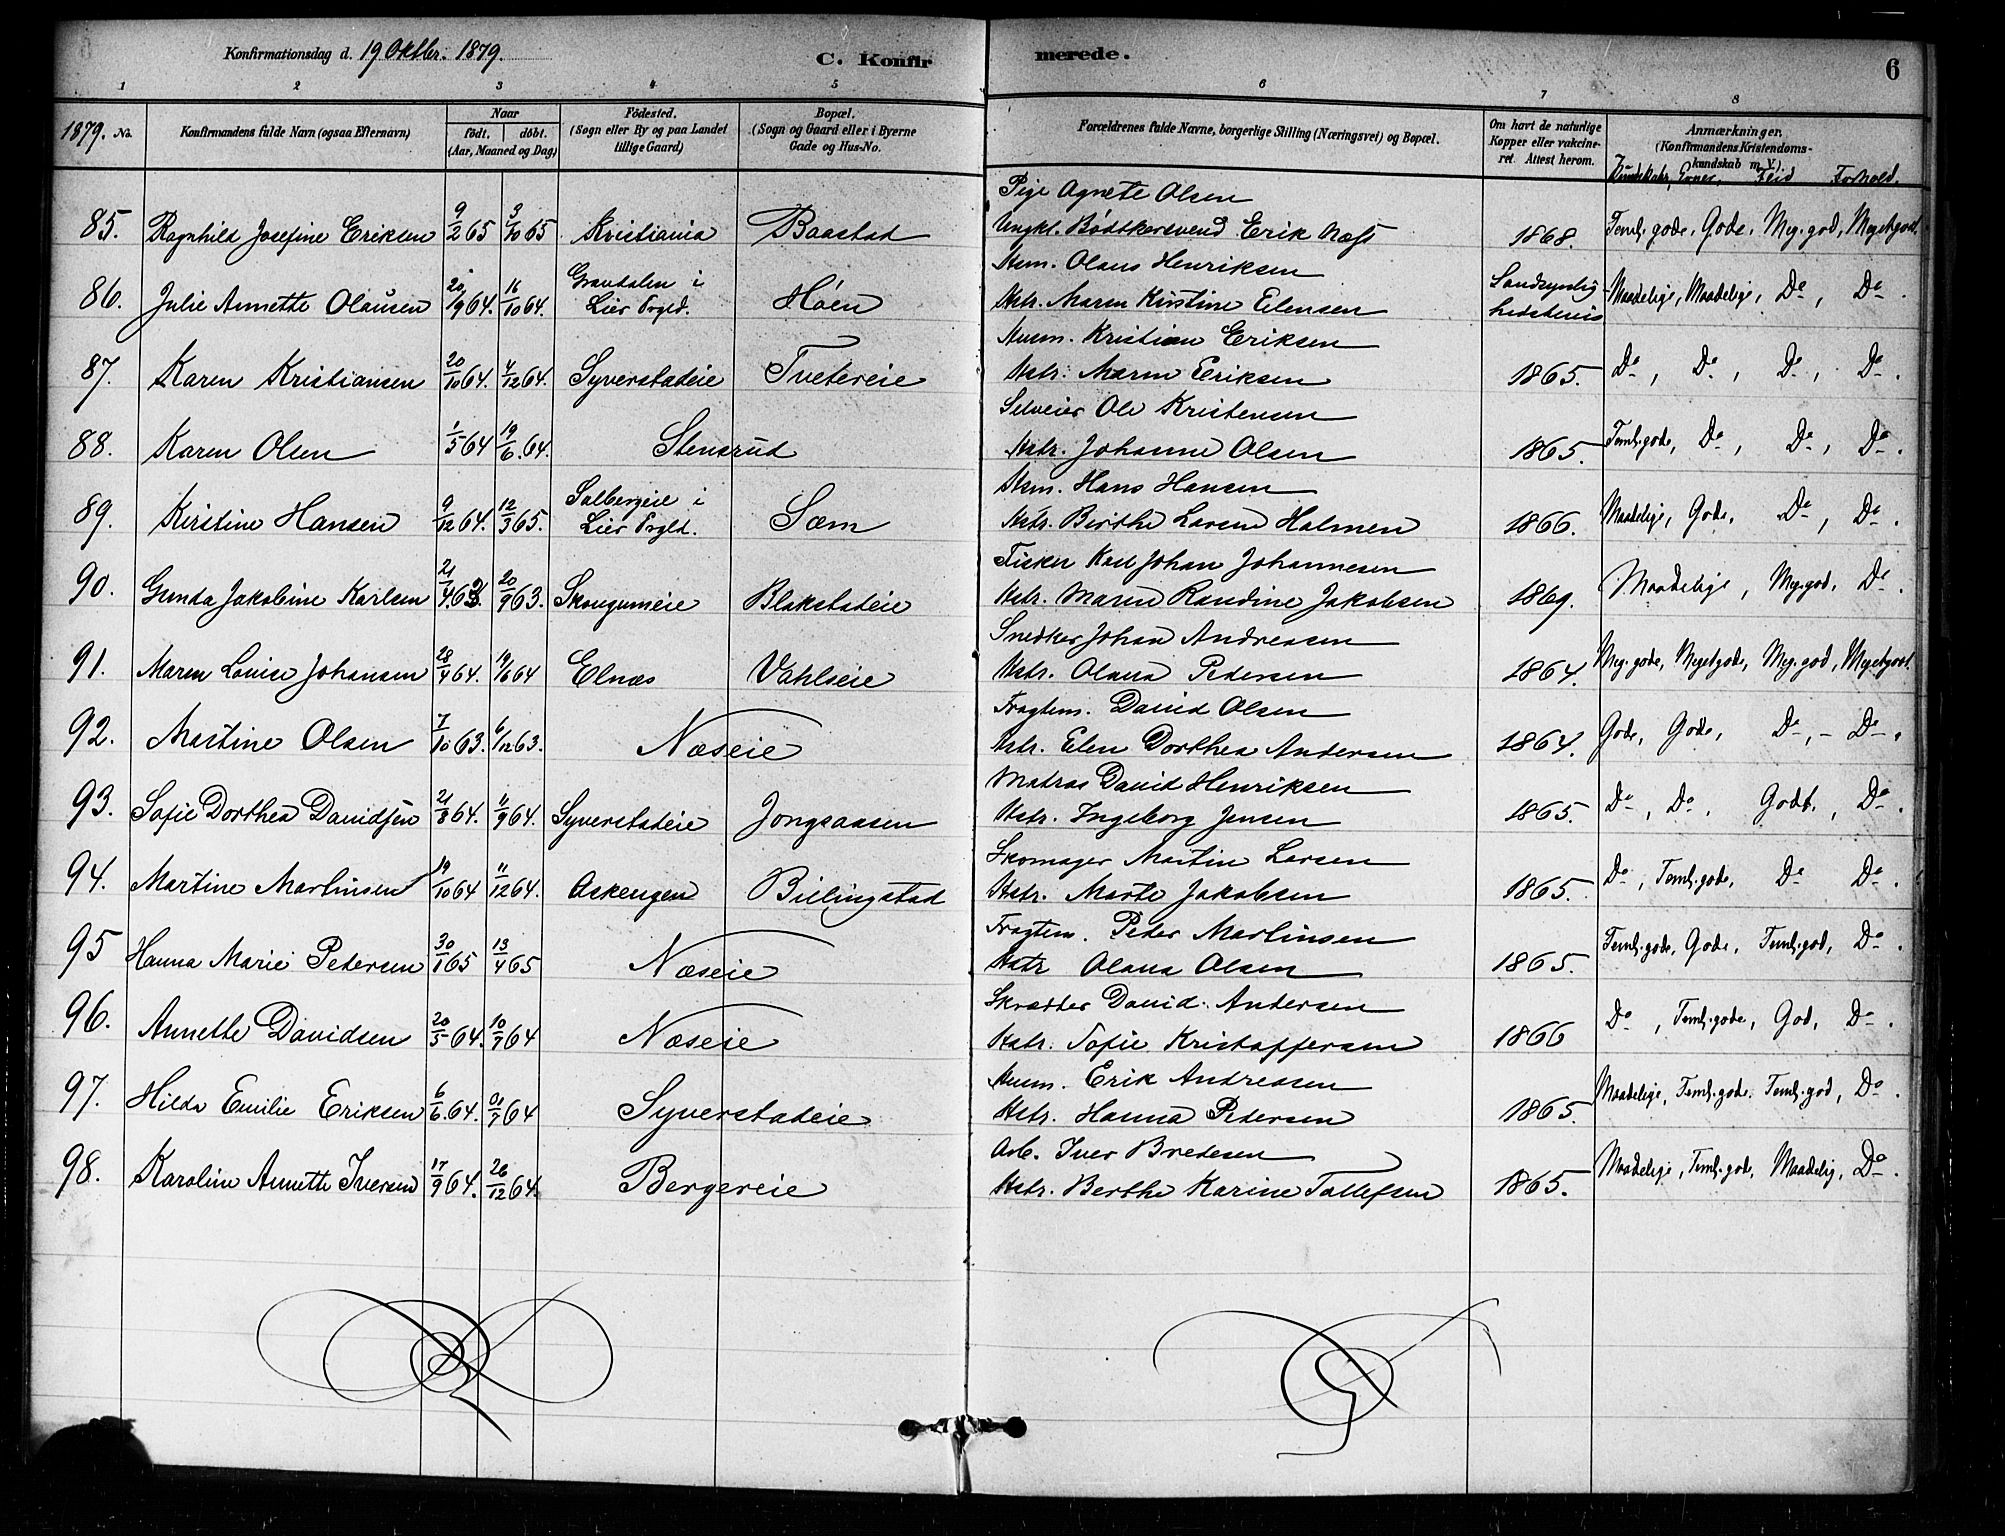 Konfirmationsdag d. 19 Oktbr. 1879.
C. Konfir merede.
6
1 2 3 4 5 6 7 8
1879. No.
Konfirmandens fulde Navn (ogsaa Efternavn)
Naar
født. døbt.
(Aar, Maaned og Dag)
Fødested.
(Sogn eller By og paa Landet
tillige Gaard)
Bopæl.
(Sogn og Gaard eller i Byerne
Gade og Hus-No.
Forældrenes fulde Navne, borgerlige Stilling (Næringsvei) og Bopæl.
Om havt de naturlige
Kopper eller vakcine-
ret. Attest herom.
Anmærkninger.
(Konfirmandens Kristendoms-
kundskab m. V.)
Kundskabr, Evner, Flid Forhold.
Pige Agnete Olsen
85. Ragnhild Josefine Eriksen 9/2 65 3/10 65 Kristiania Baastad Ungkl. Bødtkersvend Erik Næss 1868. Teml. gode, Gode, Meg. god, Megetgodt.
Husm. Olaus Henriksen
86. Julie Annette Olausen 20/9 64. 16/10 64. Grandalen i Lier Prgld. Høen Hstr. Maren Kirstine Eilensen Sandsynlighedsbevis Maadelige, Maadelige, Do, Do.
Husm. Kristian Eriksen
87. Karen Kristiansen 20/10 64. 4/12 64. Syverstadeie Tvetereie Hstr. Maren Eriksen 1865. Do, Do, Do, Do.
Selveier Ole Kristensen
88. Karen Olsen 1/5 64 19/6 64. Stensrud Hstr. Johanne Olsen 1865. Teml. gode, Do, Do, Do.
Husm. Hans Hansen
89. Kirstine Hansen 9/12 64. 12/3 65. Solbergeie i Lier Prgld. Sæm Hstr. Birthe Lovise Holmen 1866. Maadelige, Gode, Do, Do.
Fisker Karl Johan Johannesen
90. Gunda Jakobine Karlsen 21/4 63. 20/9 63. Skougumeie Blakstadeie Hstr. Maren Randine Jakobsen 1869. Maadelige, Meg. god, Do.
Snedker Johan Andreasen
91. Maren Louise Johansen 28/4 64. 19/6 64 Elnæs Vahlseie Hstr. Olava Pedersen 1864. Meg. gode, Megetgode, Meg. god, Megetgodt.
Fragtem. David Olsen
92. Martine Olsen 7/10 63. 6/12 63. Næseie Hstr. Elen Dorthea Andersen 1864. Gode, Gode, Do, Do.
Matros David Henriksen
93. Sofie Dorthea Davidsen 21/8 64. 11/9 64. Syverstadeie Jongsaasen Hstr. Ingeborg Jensen 1865. Do, Do, Godt, Do.
Skomager Martin Larsen
94. Martine Martinsen 19/10 64 11/12 64. Askengen Billingstad Hstr. Marte Jakobsen 1865. Do, Teml. gode, Do Do.
Fragtem. Peder Martinsen
95 Hanna Marie Petersen 30/1 65 13/4 65 Næseie Hstr Olava Olsen 1865. Teml. gode, Gode, Teml. god, Do.
Skrædder David Andersen
96. Annette Davidsen 20/5 64. 10/7 64 Næseie Hstr. Sofie Kristoffersen 1866 Do, Teml. gode, God, Do.
Husm. Erik Andreasen
97. Hilda Emilie Eriksen 6/6 64. /7 64 Syverstadeie Hstr. Hanna Pedersen 1865. Maadelige, Teml. gode, Teml. god, Do.
Arb. Iver Bredesen
98. Karoline Annette Iversen 17/9 64. 26/12 64. Bergereie Hstr. Berthe Karine Tollefsen 1865. Maadelige, Teml. gode, Maadelig, Do.